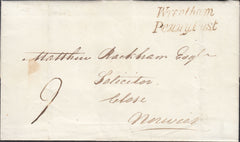 Wrentham
Penny Post
Matthew Rackham Esqr
Solicitor
Close
Norwich
9